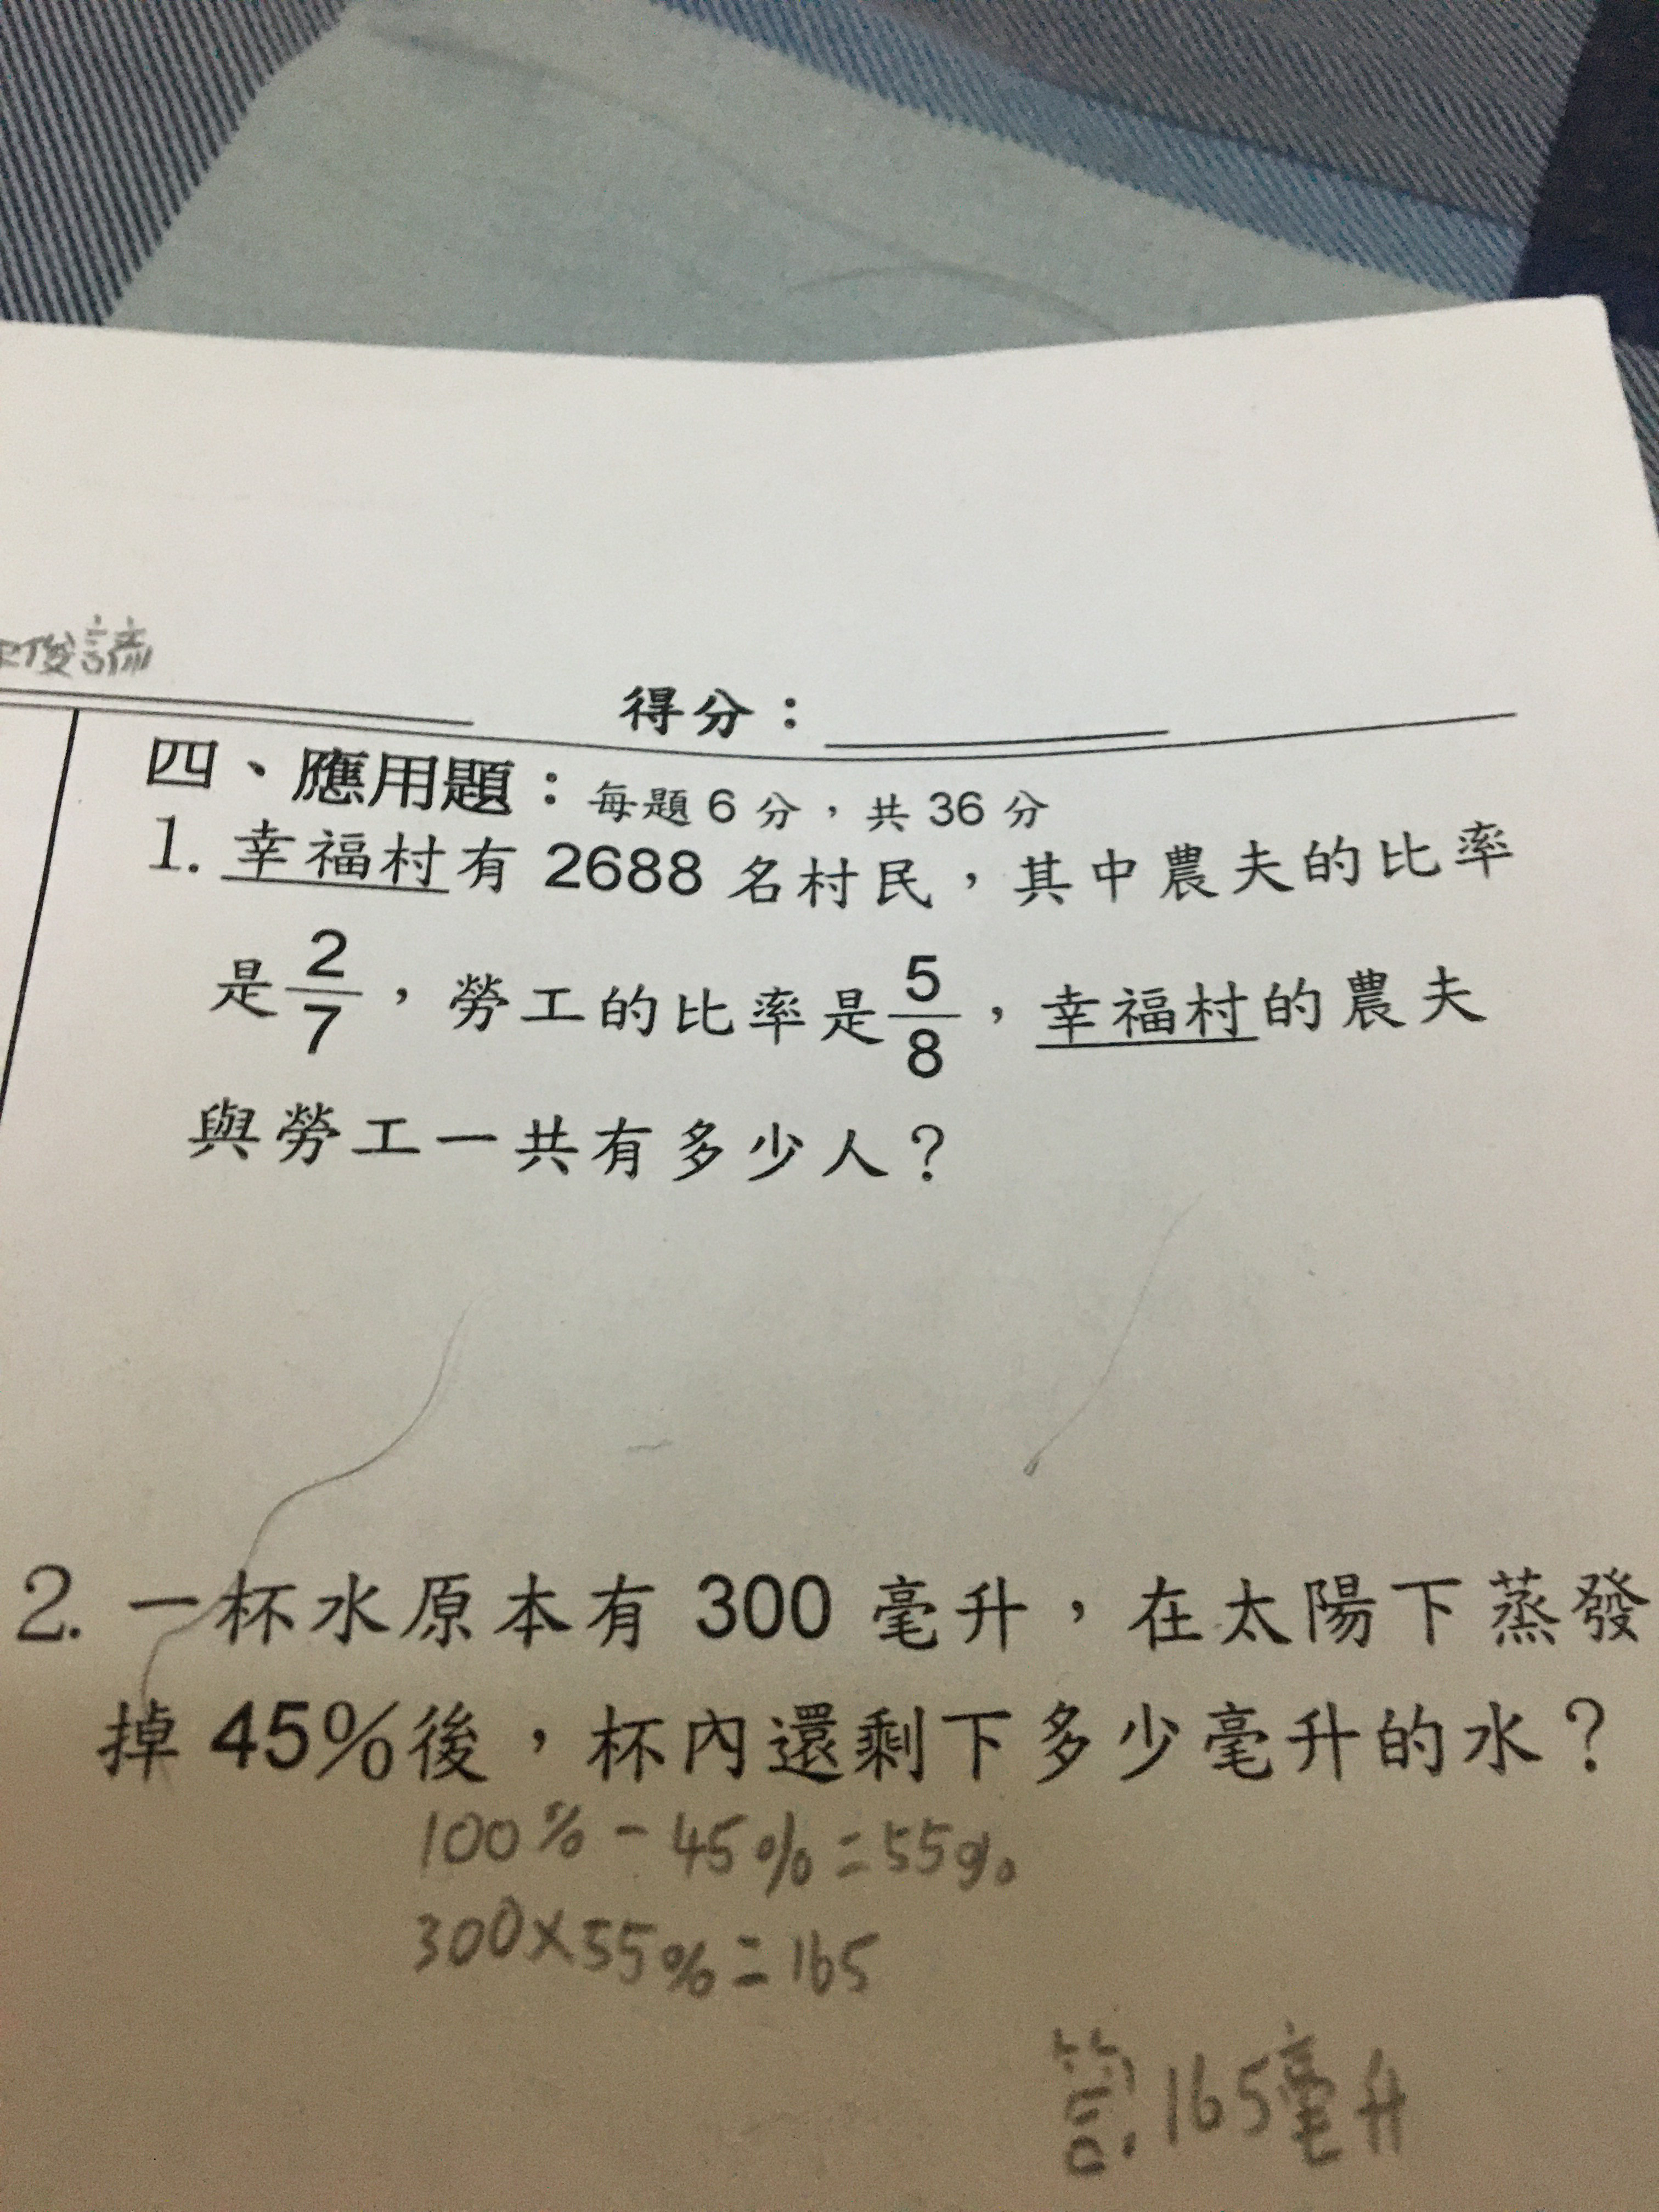 俊諦
得分：
四、應用題：每題 6 分，共 36 分
1. 幸福村有 2688 名村民，其中農夫的比率
是2/7，勞工的比率是5/8，幸福村的農夫
與勞工一共有多少人？
2. 一杯水原本有 300 毫升，在太陽下蒸發
掉 45%後，杯內還剩下多少毫升的水？
100%-45%=55%
300×55%=165
答.165毫升